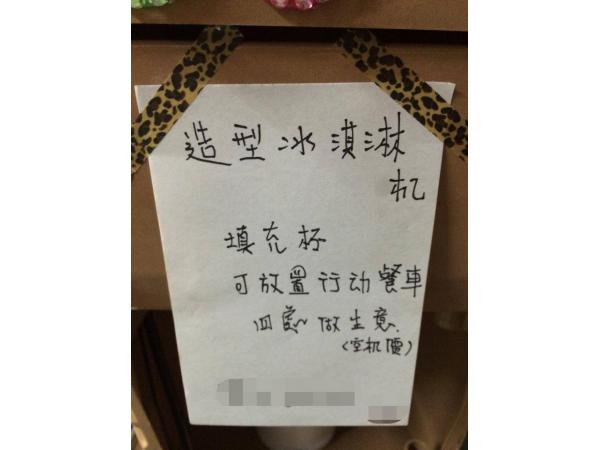 造型冰淇淋
机
填充杯
可放置行动餐車
四處做生意.
(空机價)